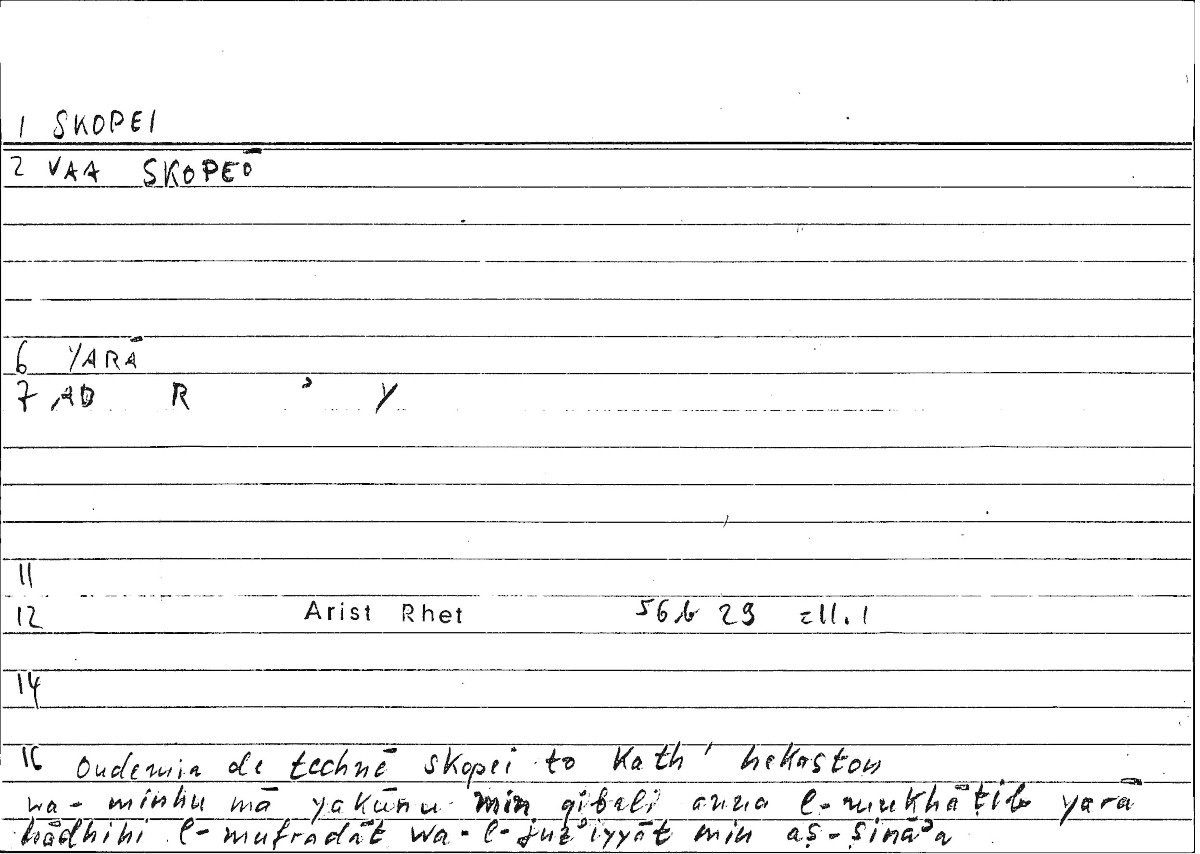 1 SKOPEI
2 VAA SKOPEŌ
6 YARĀ
7 AD R ʾ Y
11
12 Arist Rhet 56b 29 = ll. 1
14
16 Oudemia de technē skopei to kath' hekaston
wa-minhu mā yakūnu min qibali anna l-mukhāṭib yarā
hādhihi l-mufradāt wa-l-juzʾiyyāt min aṣ-ṣināʾa